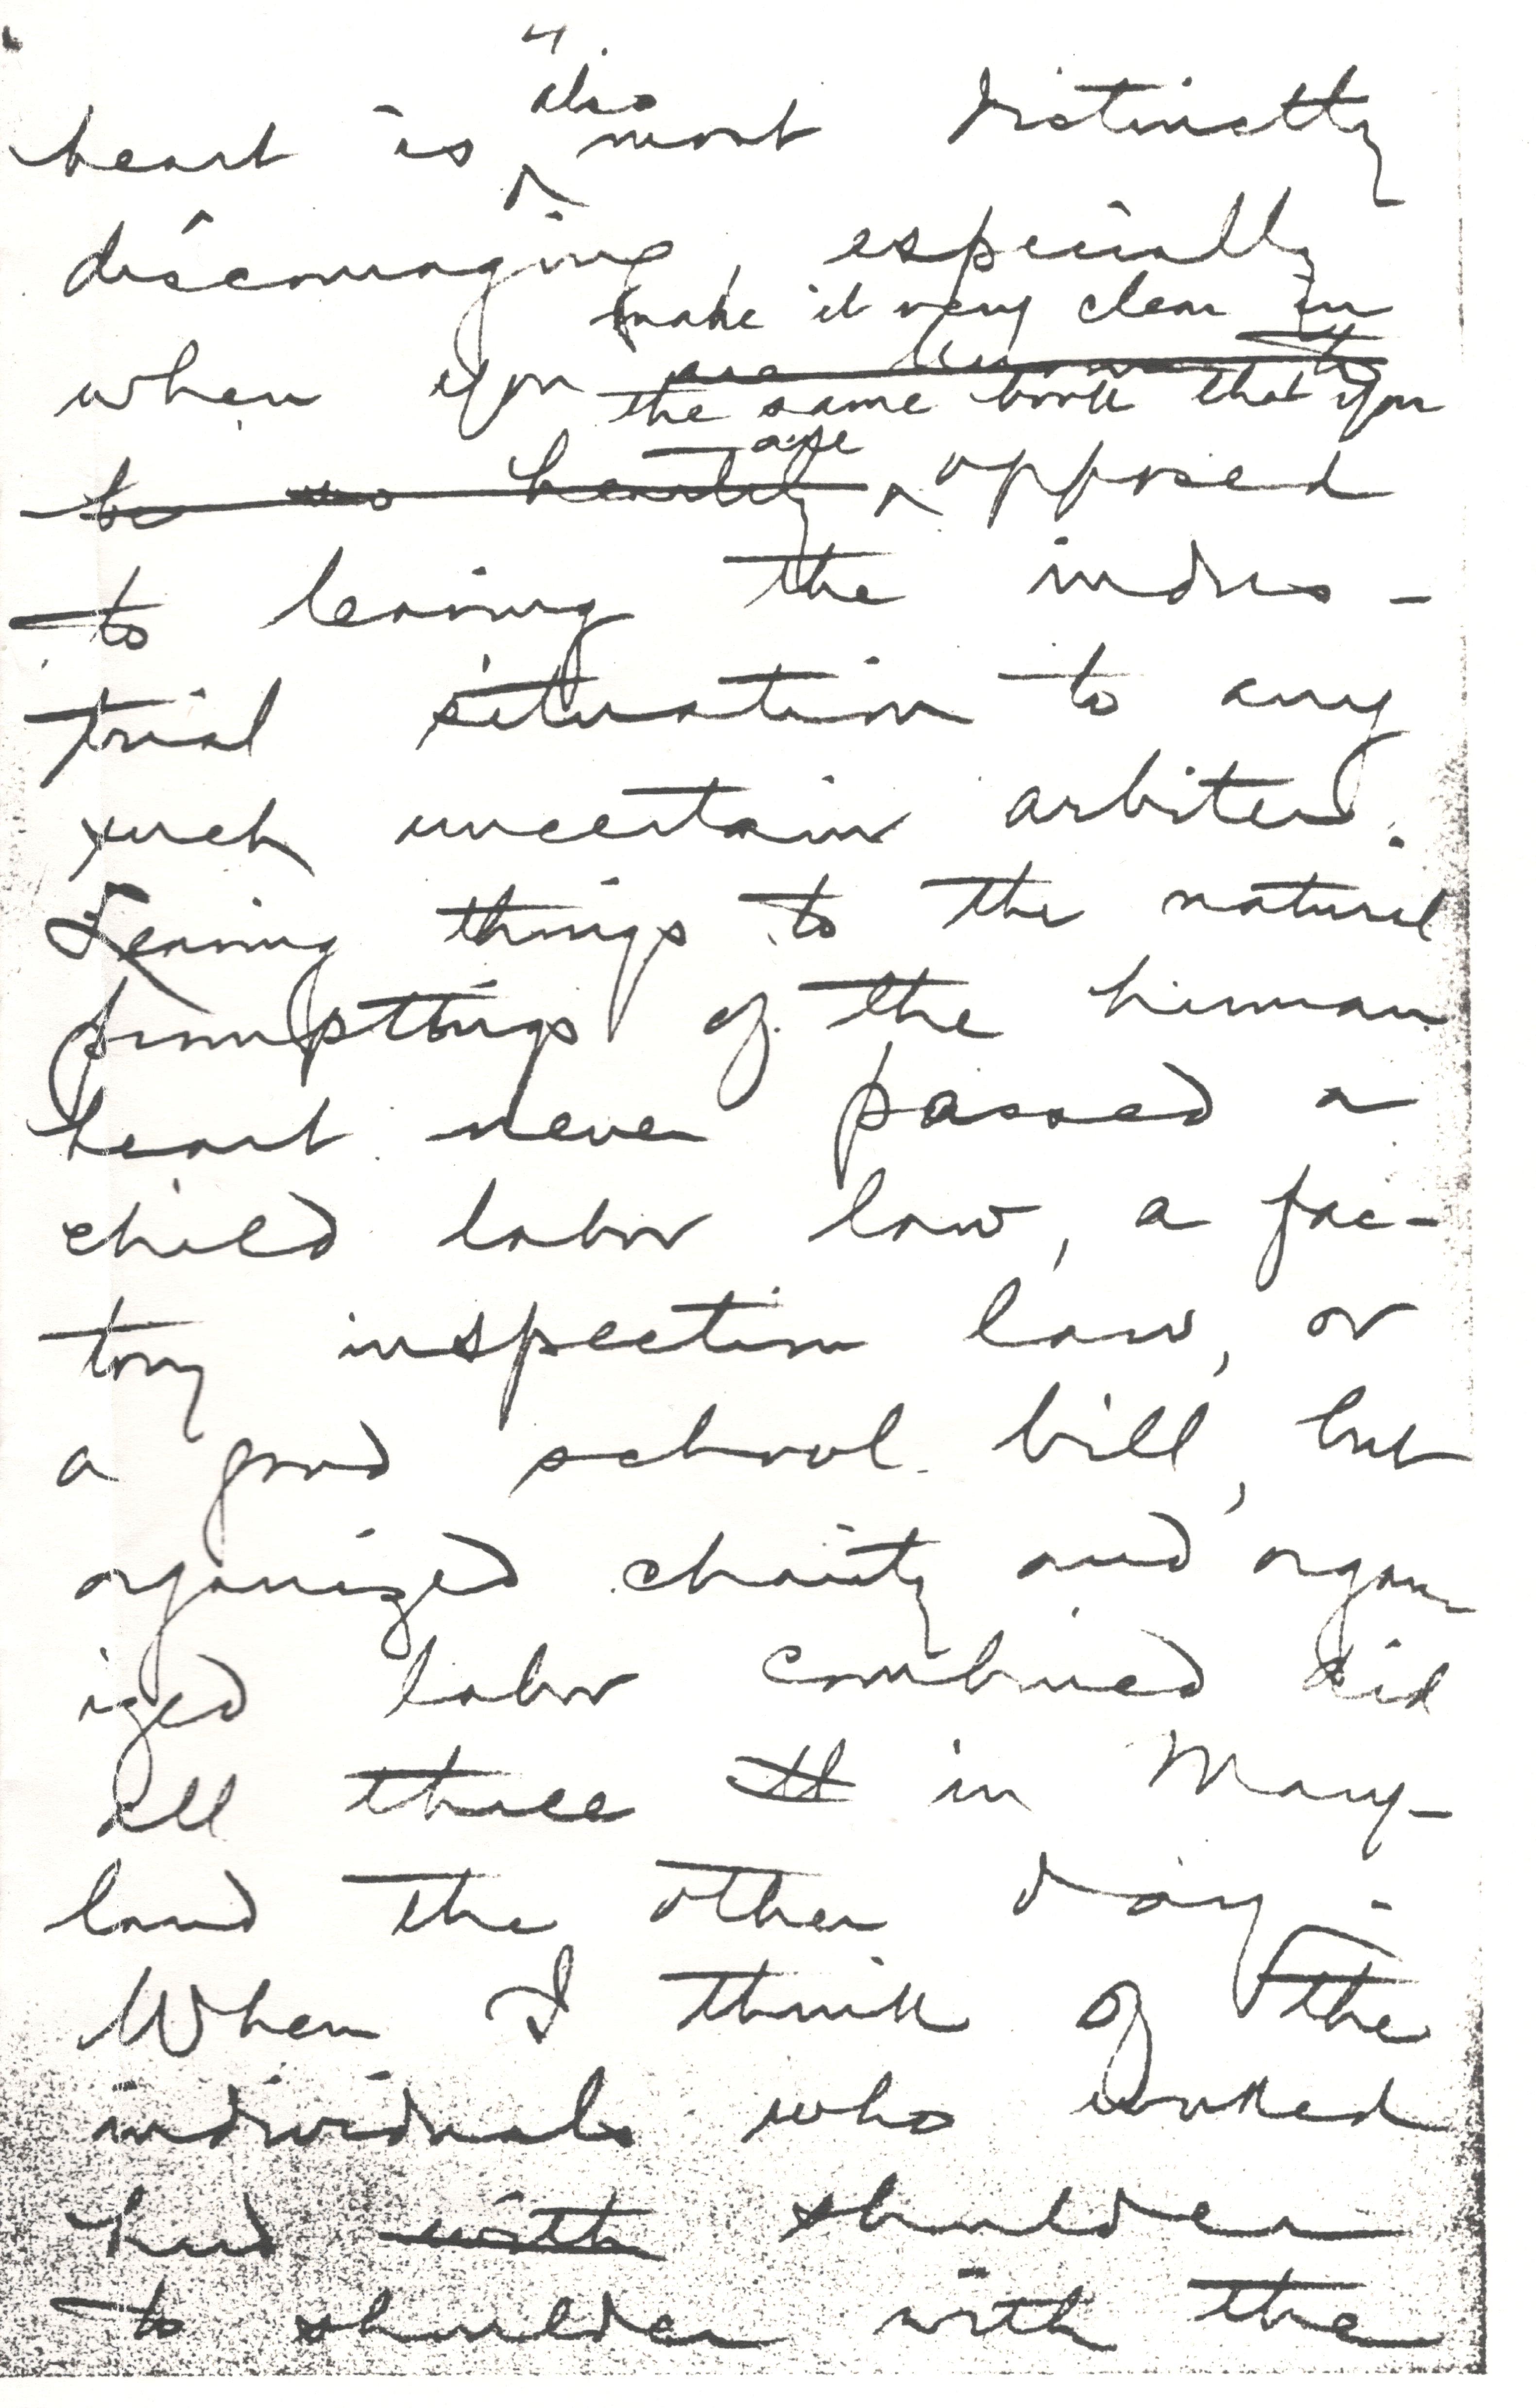 4
also
heart is ^ most distinctly
discouraging, especially
make it very clear in
when you are known to
the same book that you
are
be so heartily ^ opposed
to leaving the indus-
trial situation to any
such uncertain arbiter.
Leaving things to the natural
promptings of the human
heart never passed a
child labor law, a fac-
tory inspection law, or
a good school bill, but
organized charity and organ
ized labor combined did
all three in Mary-
land the other day.
When I think of the
individuals who worked
hard with shoulder
to shoulder with the